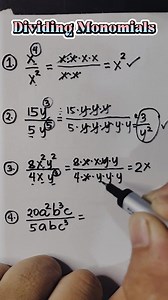 Dividing Monomials
① x⁴/x² = x·x·x·x/x·x = x² ✓
② 15y³/5y⁵ = 15·y·y·y/5·y·y·y·y·y = 3/y²
③. 8x²y³/4xy³ = 8·x·x·y·y/4·x·y·y·y = 2x
④. 20a²b³c/5abc³ =